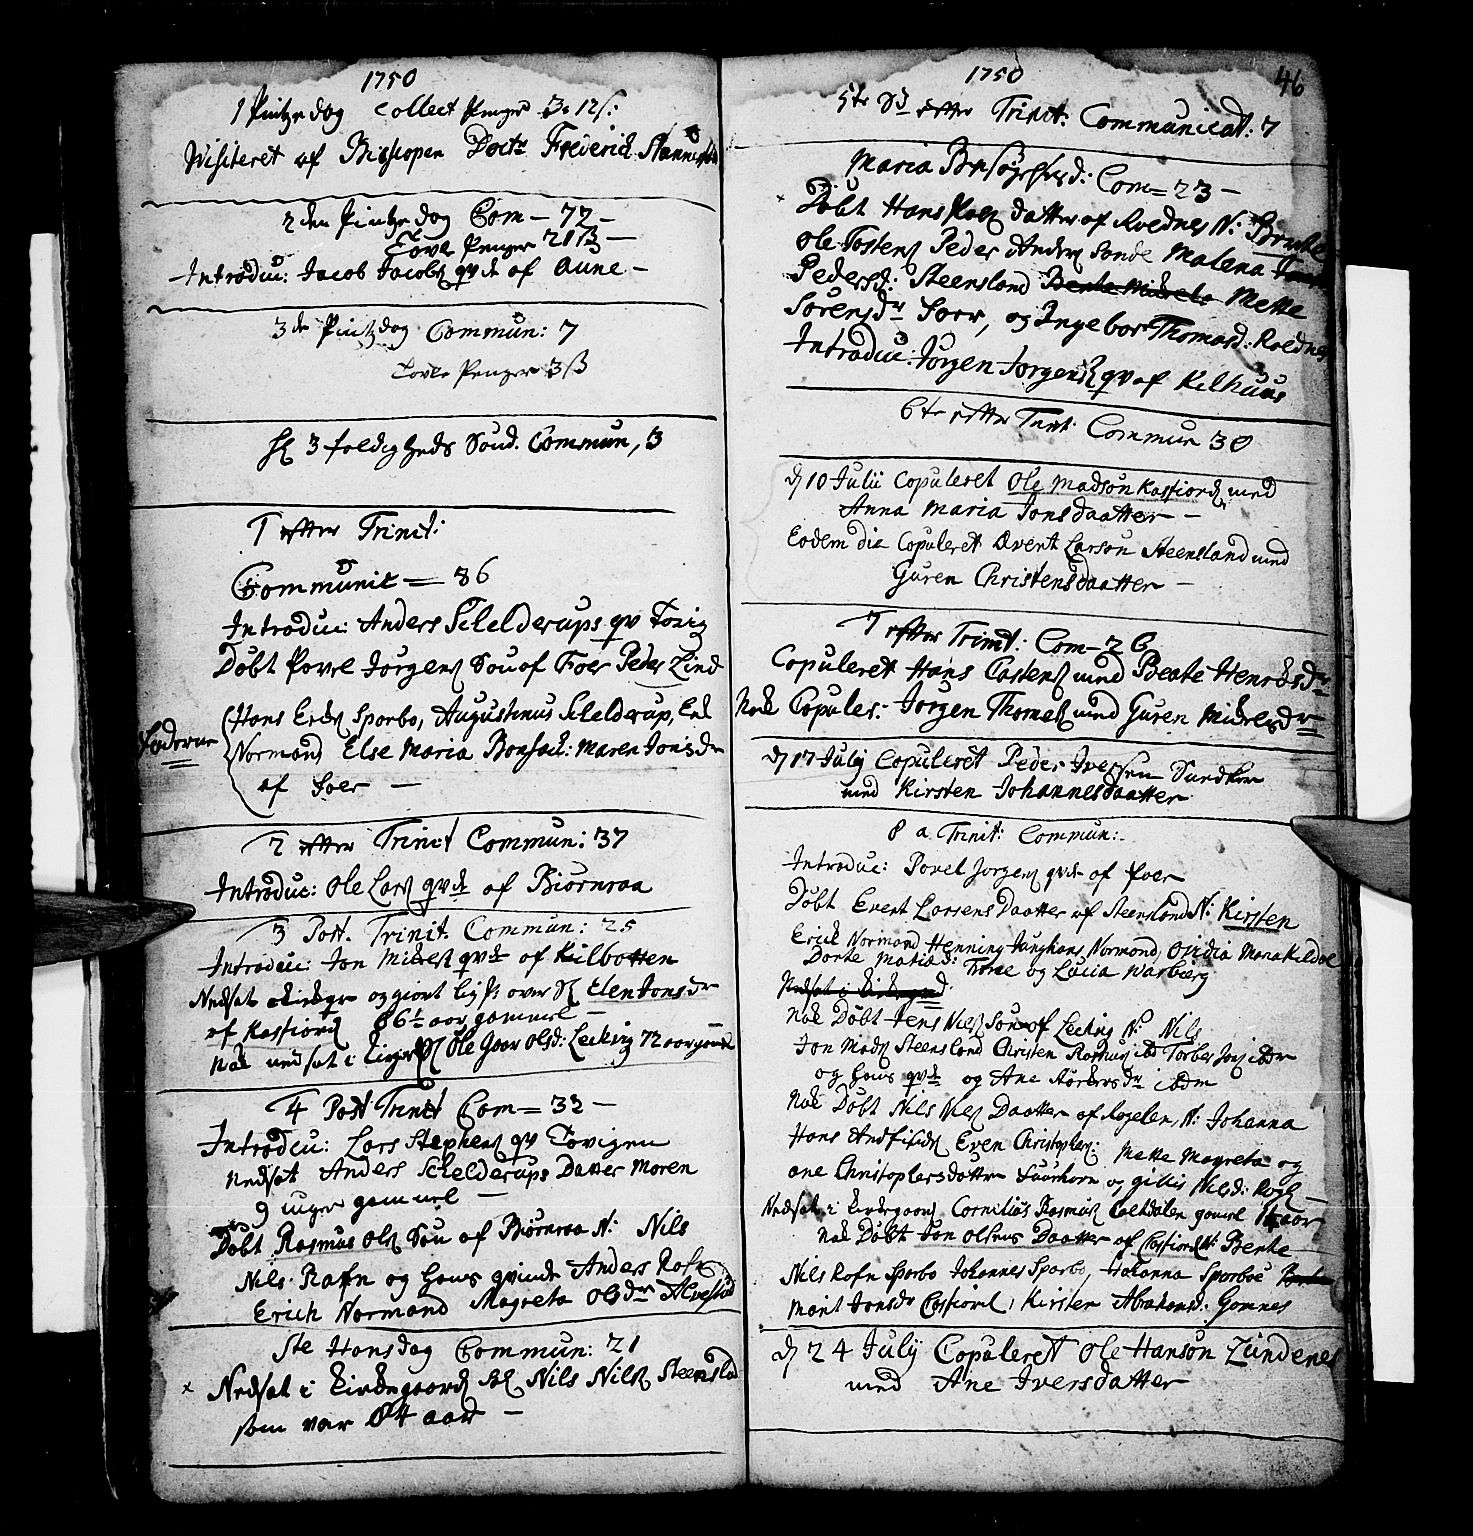 1750
1 Pintzedag Collect Penger 3 12 s:
Visiteret af Bischopen Doctr Friderich Nannestad
2den Pintzedag Com - 72 -
Tavle Penger 21 ß -
Introduc: Jacob Jacobs qvde af Aune -
3de Pintzdag Commun: 7
Tavle Penger 3 ß
Hl 3foldigheds Sönd. Commun, 3
1 efter Trinit:
Communic = 86
Introduc: Anders Schelderups qv Tovig
Döbt Povel Jörgens Sön af Foer Peder Lind
Fadderne
Hans Erichs Sparbo, Augustinus Schelderup, Erik
Normand Else Maria Bonsach: Maren Jonsdr
af Foer -
2 efter Trinit Commun: 37
Introduc: Ole Lars qvde af Biörnraa
3 Post. Trinit: Commun: 25
Introduc: Jon Mickels qvde af Kilbotten
Nedsat og giort ligpr over Sl Elen Jonsdr
af Kasfiord 86½ aar gammel -
Nok nedsat i Sl Ole Goar Olsd: Leeking 72 aar gammel
4 Post Trinit Com = 32 -
Introdcu: Lars Stephens qv Tovigen
Nedsat Anders Schelderups Datter Maren
9 uger gammel -
Döbt Rasmus Ols Sön af Biörnraa N: Nils
Nils Rafn og hans qvinde Anders Rafn
Erich Normand Magreta Olsdr Alvestad
Ste Hansdag Commun: 21
x Nedsat i kirkegaard Sal Nils Nils Steensland
som var 84 aar -
1750
46
5te Sd efter Trinit: Communicat: 7
Maria Besögelsesd: Com = 23 -
x Döbt Hans Pols datter af Roednes N: Bereke
Ole Tostens Peder Anders Sande Malena
Pedersd: Steensland Mette
Sörensdr Foer, og Ingebor Thomasd: Roednes
Introduc: Jörgen Jörgens qv af Kilhuus
6te efter Trint: Commun 30
d 10 Julii Copuleret Ole Madsön Kasfiord med
Anna Maria Jonsdaatter -
Eodem die Copuleret Evert Larsön Steensland med
Guren Christensdaatter -
7 efter Trinit: Com - 26
Copuleret Hans Castens med Beate Henrichsdr
Nok Copuler: Jörgen Thomes med Guren Mickelsdr
d 17 July Copuleret Peder Iverssen Sandtorv
med Kirsten Johannesdaatter
8 a Trinit: Commun:
Introduc: Povel Jörgens qvde af Foer
Döbt Evert Larsens Daatter af Steensland N: Kirsten
Erich Normand Henning Junghans Normand, Ovidia Mona Kildal
Dorte Matiad: Foree og Lucia Warberg
Nedsat i kirkegaard.
Nok Döbt Jens Nils Sön af Leeking N: Nils
Jon Mads Steensland Christen Rasmus ibd Torber Jons ibdm
og hans qvde og Ane Anersdr ibdm
Nok Döbt Nils Nils Daatter af Rogelen, N: Johanna
Hans Andfinds Even Christophers: Mette Magreta og
ane Christophersdatter Saurhorn og Gillis Nilsd: Rogl -
Nedsat i kirkegaard Cornilius Rasmus Caltdalen gamel 14 aar
Nok Döbt Jon Olsens Daatter af Casfiord N: Berete -
Nils Rafn Sparbo Johannes Sparbo, Johanna Sparboe
Marit Jonsdr Casfiord, Kirsten Abrahamsd: Gamnes
d 24 July Copuleret Ole Hansön Lündenes
med Ane Iversdatter